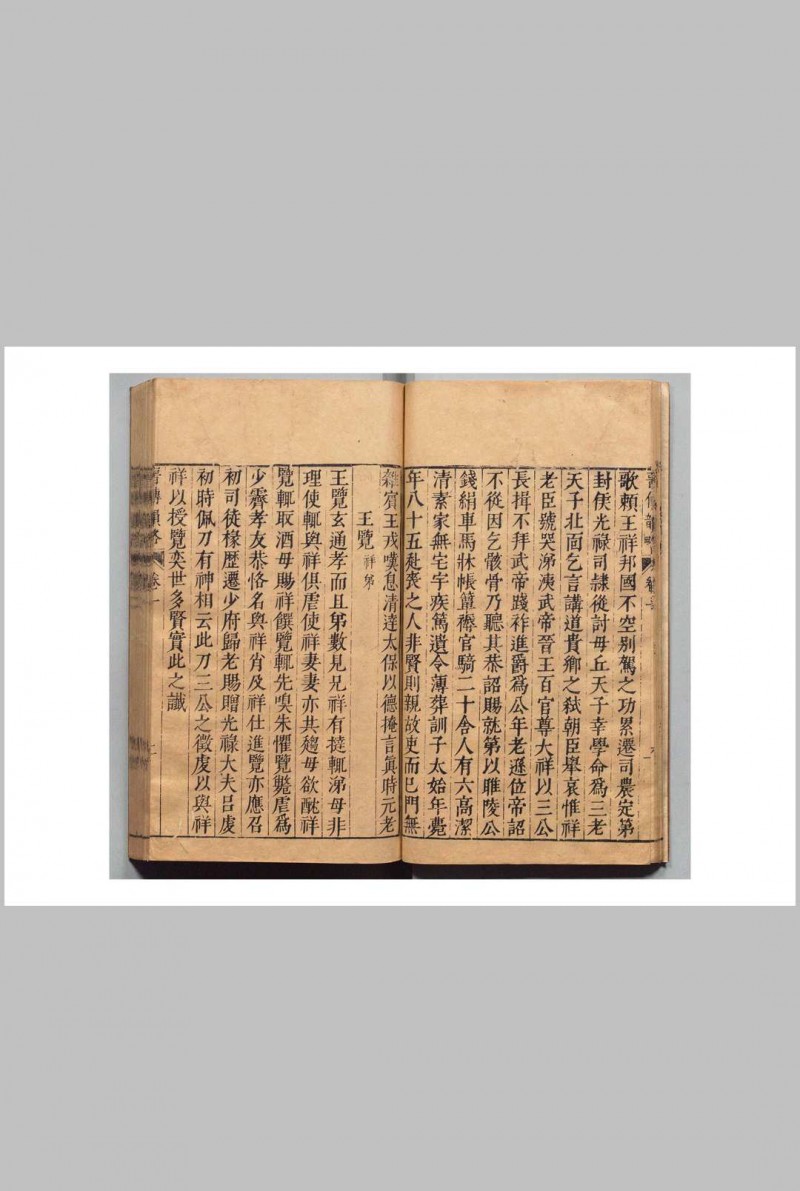 歌頼王祥邦國不空别駕之功累遷司農定第
封侯光祿司隷從討毋丘天子幸學命爲三老
天子北面乞言講道貴鄉之弒朝臣舉哀惟祥
老臣號哭涕淚武帝晉王百官尊大祥以三公
長揖不拜武帝踐祚進爵爲公年老遜位帝詔
不從因乞骸骨乃聽其恭詔賜就第以睢陵公
錢絹車馬牀帳簟褥官騎二十舍人有六高潔
清素家無宅宇疾篤遺令薄葬訓子太始年薨
年八十五赴喪之人非賢則親故吏而已門無
雜賓王戎嘆息清達太保以德掩言眞時元老
王覽祥弟
王覽玄通孝而且弟數見兄祥有撻輒涕母非
理使輒與祥俱虐使祥妻妻亦共趨母欲酖祥
覽輒取酒母賜祥饌覽輒先嗅朱懼覽斃虐爲
少霽孝友恭恪名與祥肖及祥仕進覽亦應召
初司徒椽歴遷少府歸老賜贈光祿大夫吕虔
初時佩刀有神相云此刀三公之徵虔以與祥
祥以授覽奕世多賢實此之讖
晉傳韻畧 卷一 二